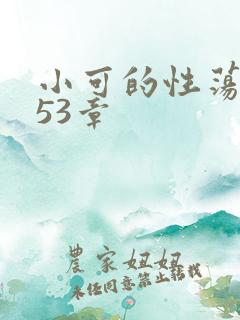 小可的性荡
53章
農家妞妞
未经同意禁止转载